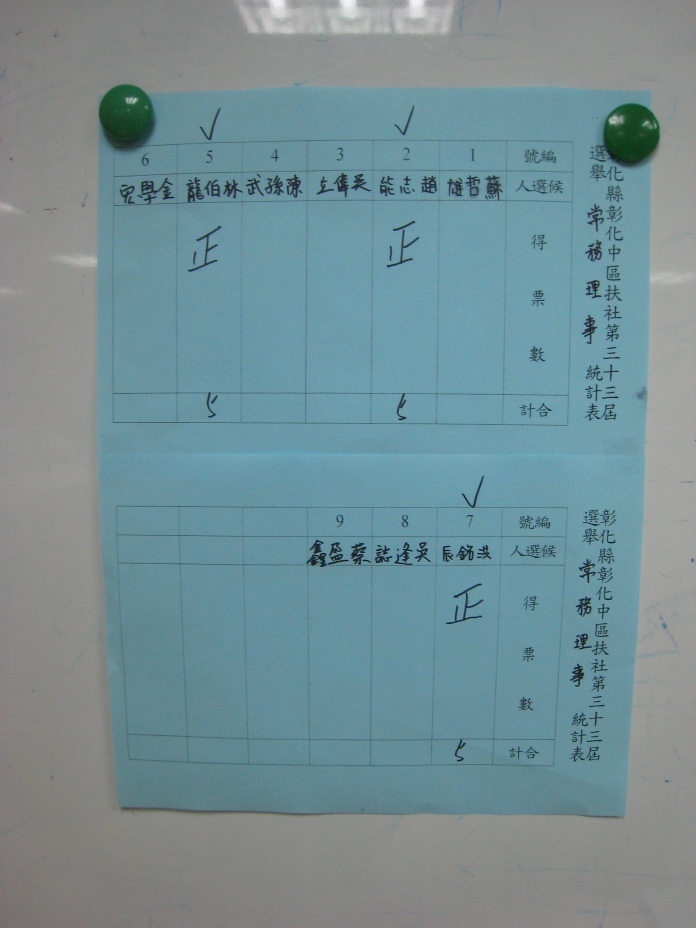 彰化縣彰化中區扶社第三十三屆
選舉 常務理事 統計表
編號 1 2 3 4 5 6
候選人 蘇哲雄 趙志能 吳偉立 陳孫武 林伯龍 金學
得票數 正 正
合計 5 5
彰化縣彰化中區扶社第三十三屆
選舉 常務理事 統計表
編號 7 8 9
候選人 洪銘辰 吳逢誌 蔡盈鑫
得票數 正
合計 5